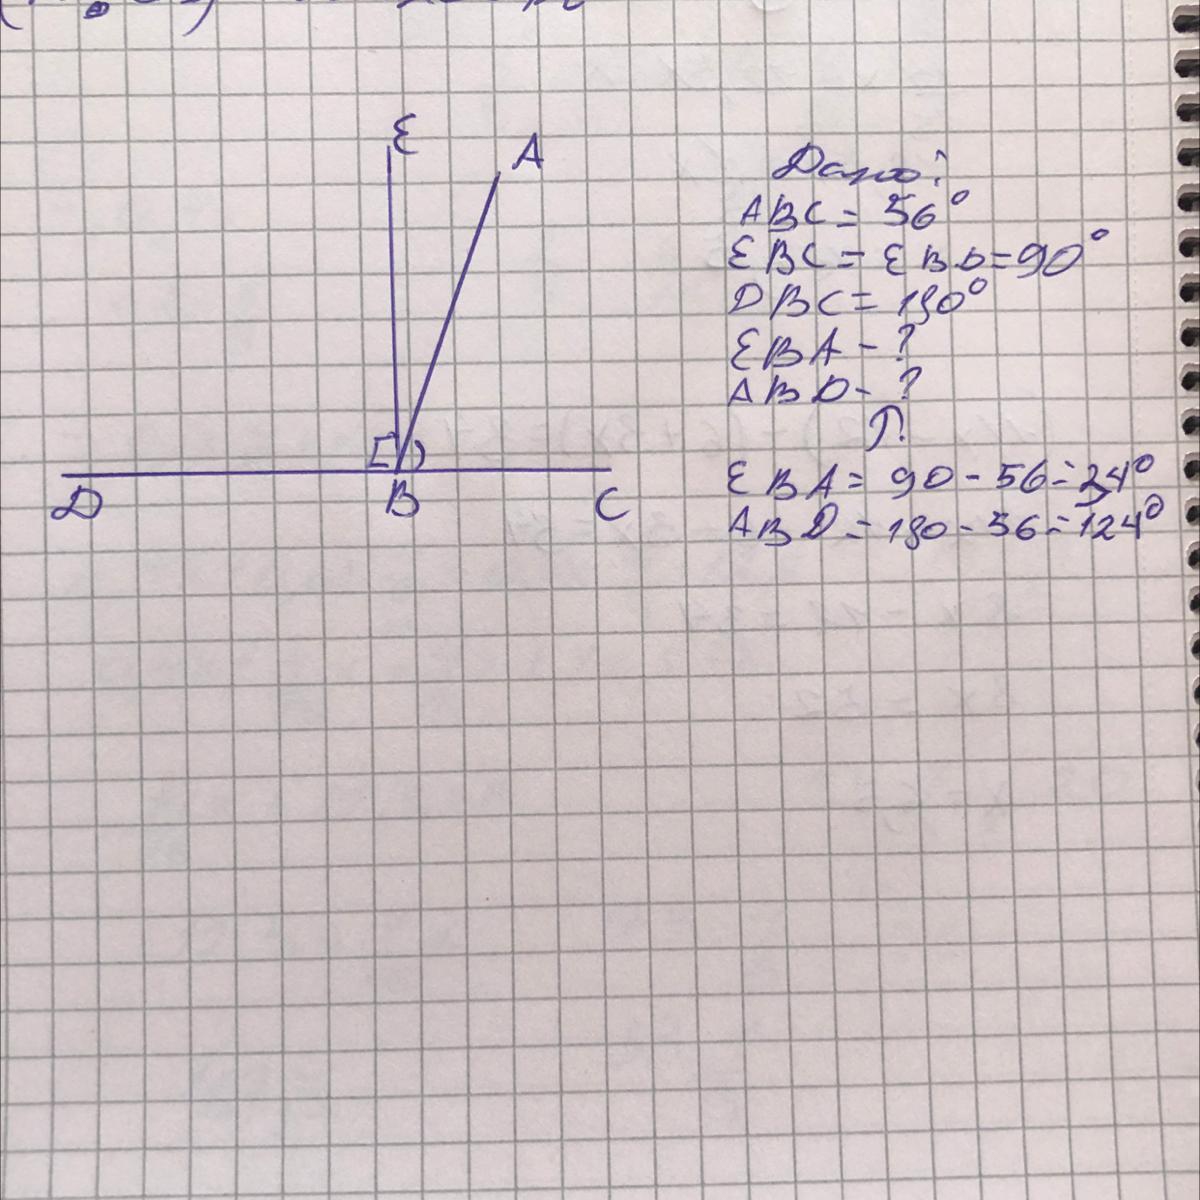 E
A
D
B
C
Дано:
ABC = 56°
EBC = EBD = 90°
DBC = 180°
EBA - ?
ABD - ?
EBA = 90 - 56 = 24°
ABD = 180 - 56 = 124°